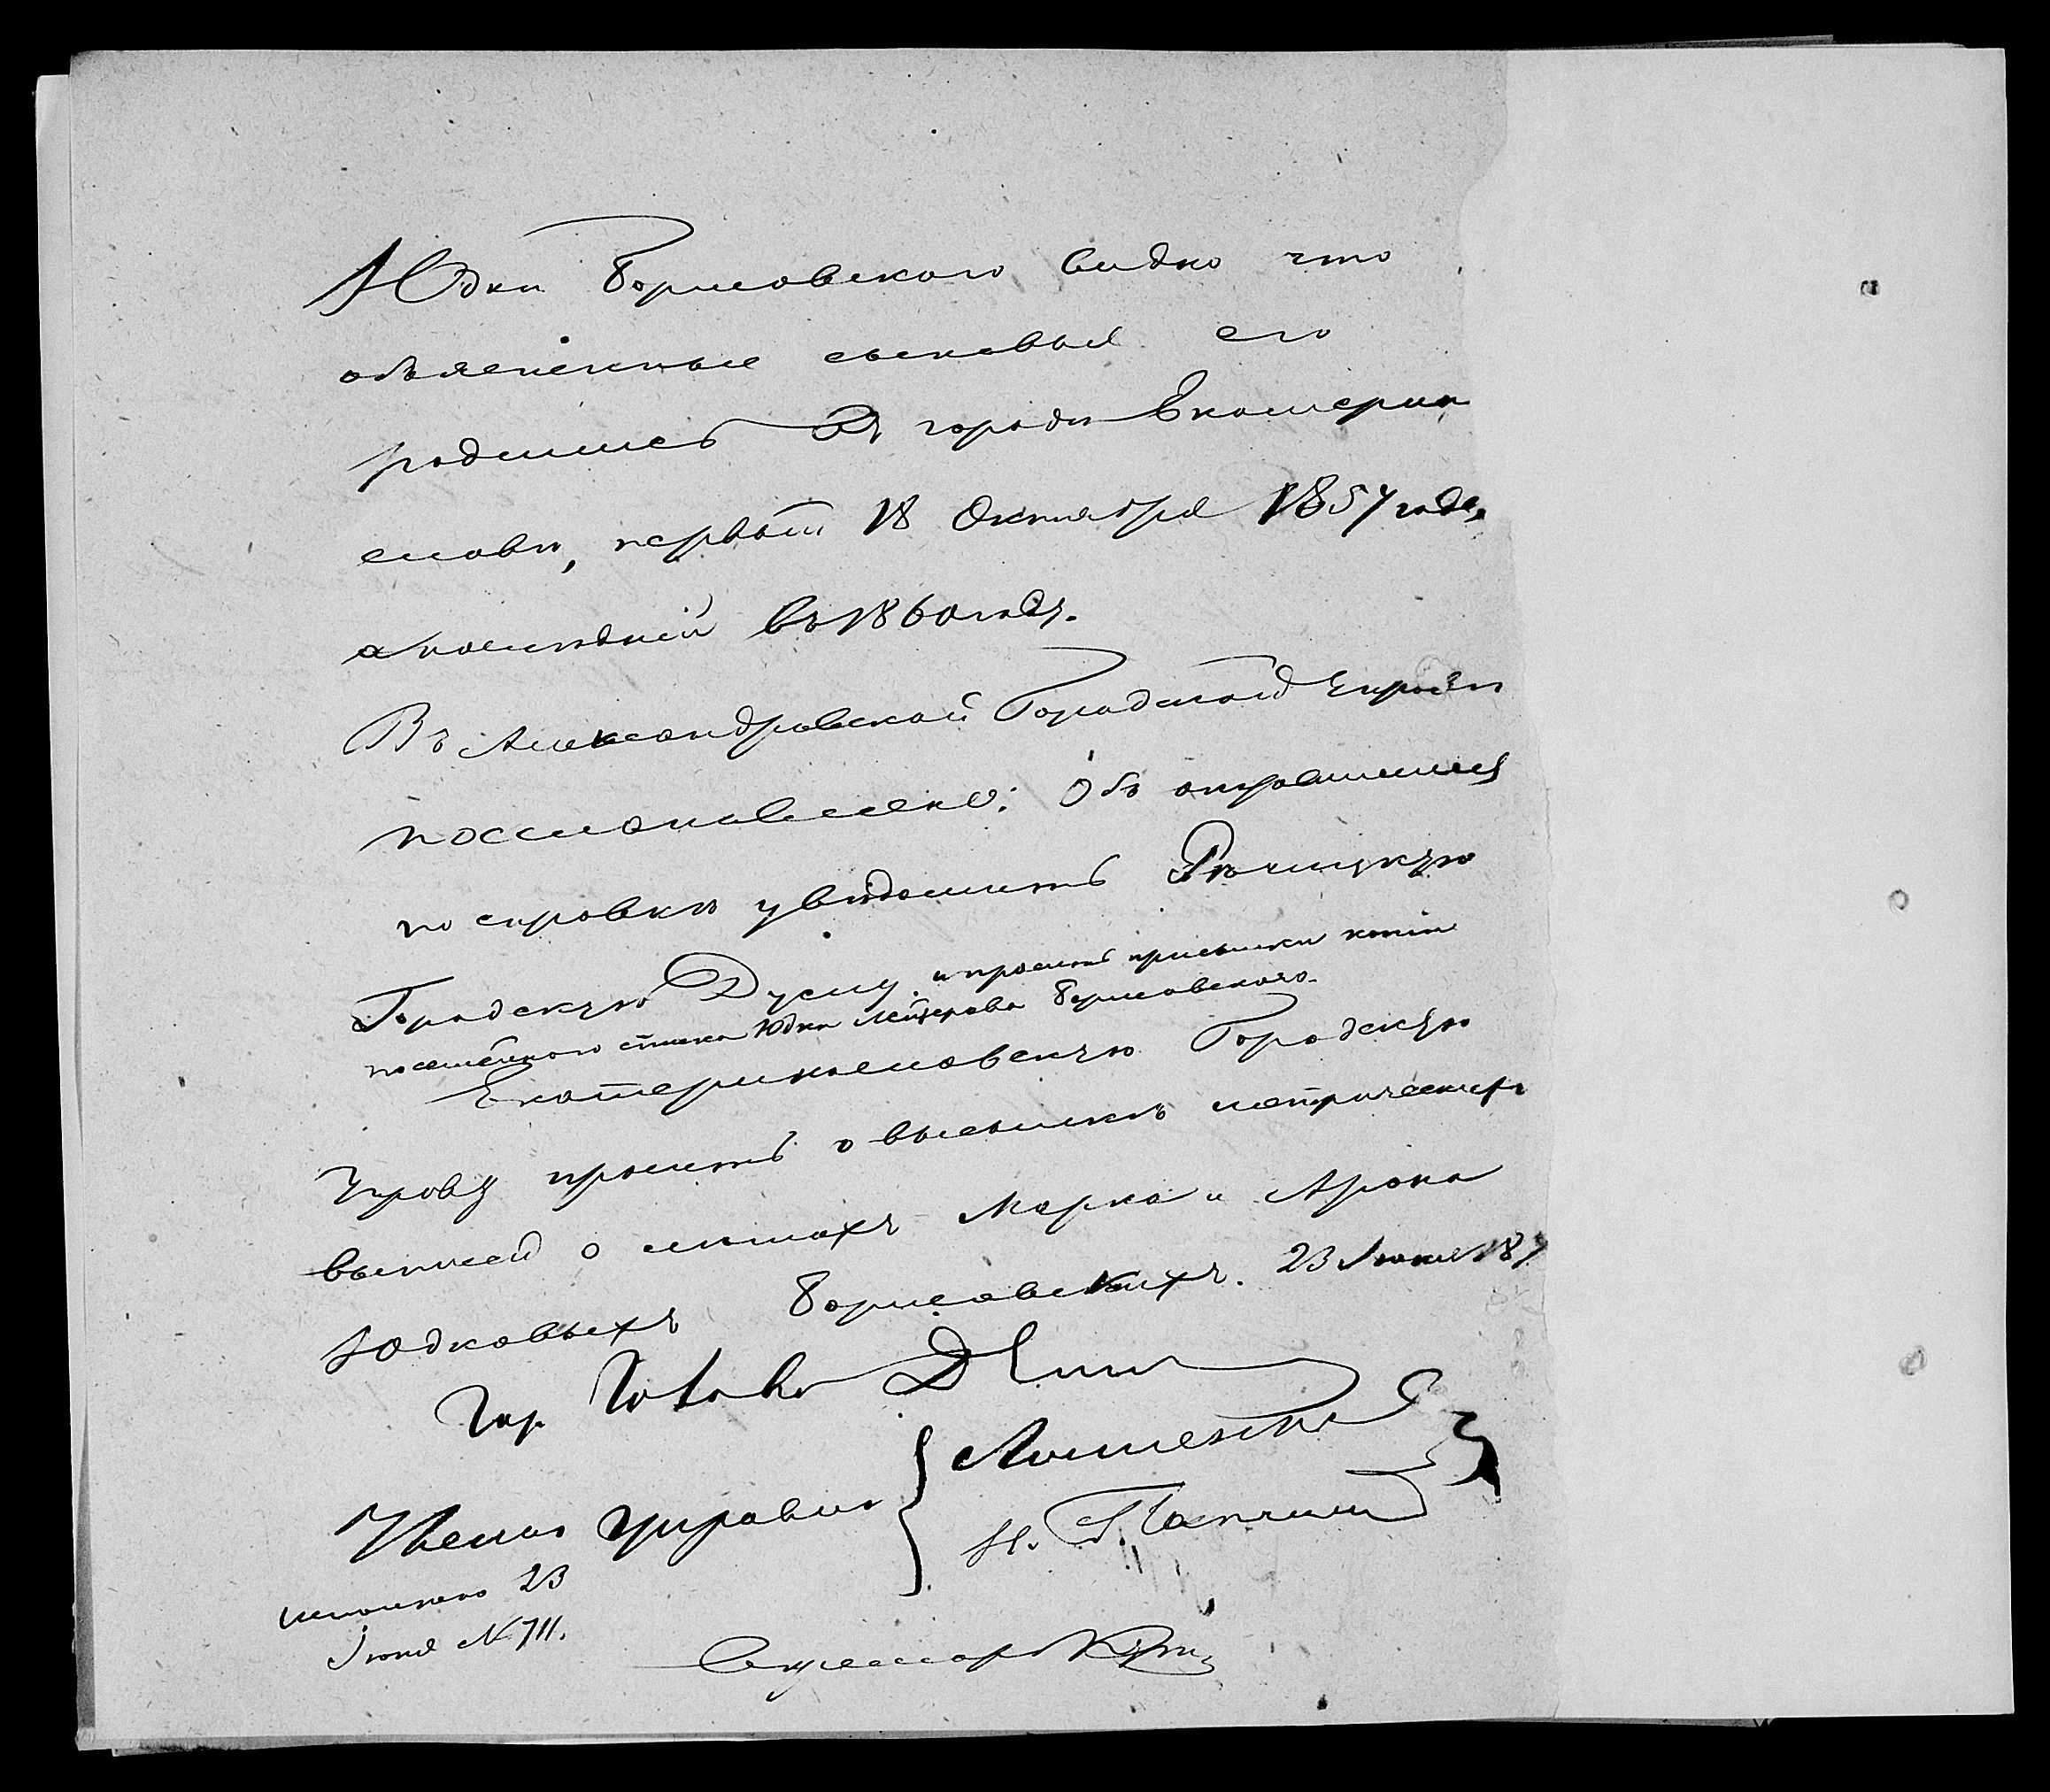 Юдки Борисовского видно что
объясненные сыновья его
родились въ городѣ Екатерин
ославѣ, первый 18 Октября 1857 года,
а послѣдній въ 1860 годѣ.
Въ Александровской Городской Управѣ
постановлено: Объ открытой
по справкѣ увѣдомить Рѣчицкую
Городскую Думу. и просить присылки копіи
посемейнаго списка Юдки Лейзерова Борисовского.
Екатеринославскую Городскую
Управу просить о высылкѣ метрическихъ
выписей о лѣтахъ Марка и Арона
Юдковыхъ Борисовскихъ. 23 Іюня 187
Гор. Голова
Члены Управы
Н.
исполнено 23
Іюня № 711.
Секретарь